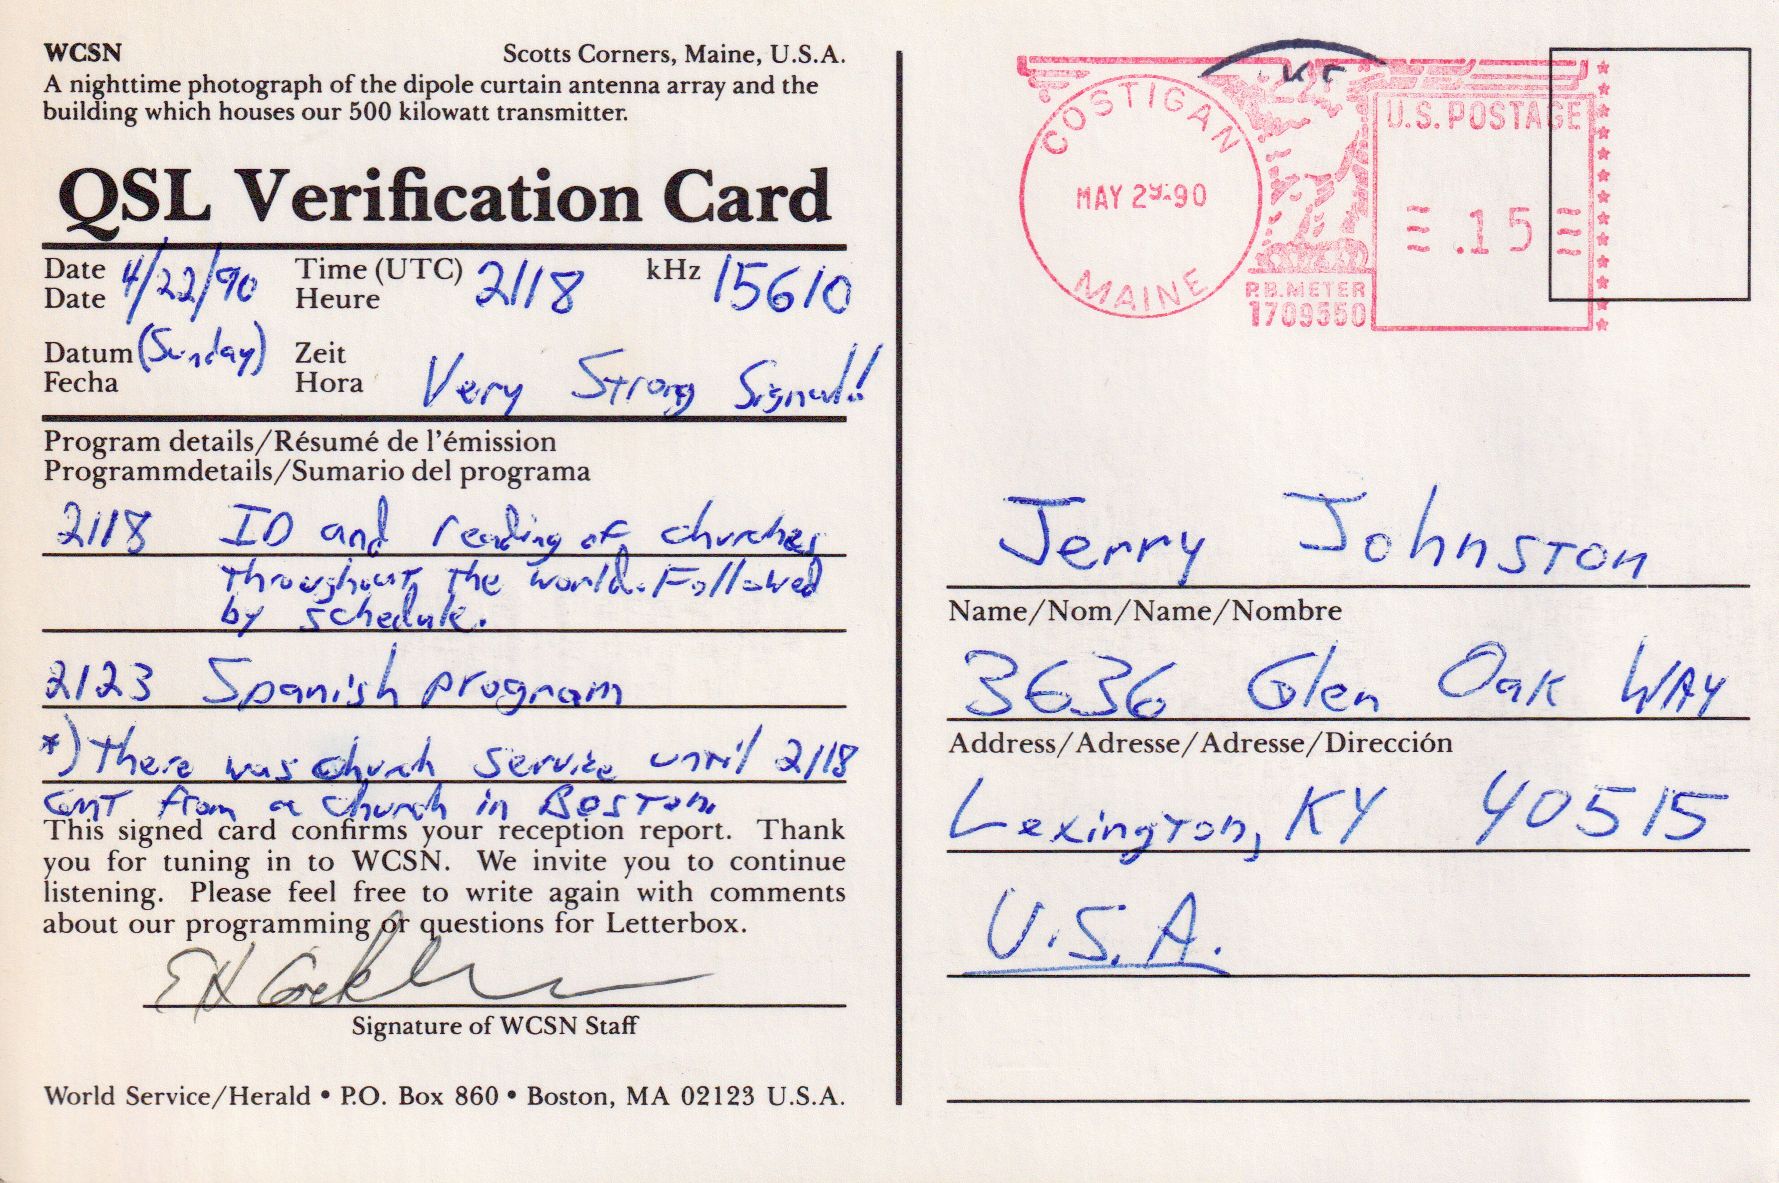 WCSN Scotts Corners, Maine, U.S.A.
A nighttime photograph of the dipole curtain antenna array and the
building which houses our 500 kilowatt transmitter.
QSL Verification Card
Date 4/22/90 Time (UTC) 2118 kHz 15610
Date Heure
Datum (Sunday) Zeit
Fecha Hora Very Strong Signal!!
Program details/Résumé de l'émission
Programmdetails/Sumario del programa
2118 ID and reading of churches
throughout the world. Followed
by schedule.
2123 Spanish program
*) There was church service until 2118
GMT from a church in Boston.
This signed card confirms your reception report. Thank
you for tuning in to WCSN. We invite you to continue
listening. Please feel free to write again with comments
about our programming or questions for Letterbox.
Signature of WCSN Staff
World Service/Herald • P.O. Box 860 • Boston, MA 02123 U.S.A.
COSTIGAN
MAY 90
MAINE
P.B. METER
1709550
U.S. POSTAGE
.15
Jerry Johnston
Name/Nom/Name/Nombre
3636 Glen Oak Way
Address/Adresse/Adresse/Dirección
Lexington, KY 40515
U.S.A.